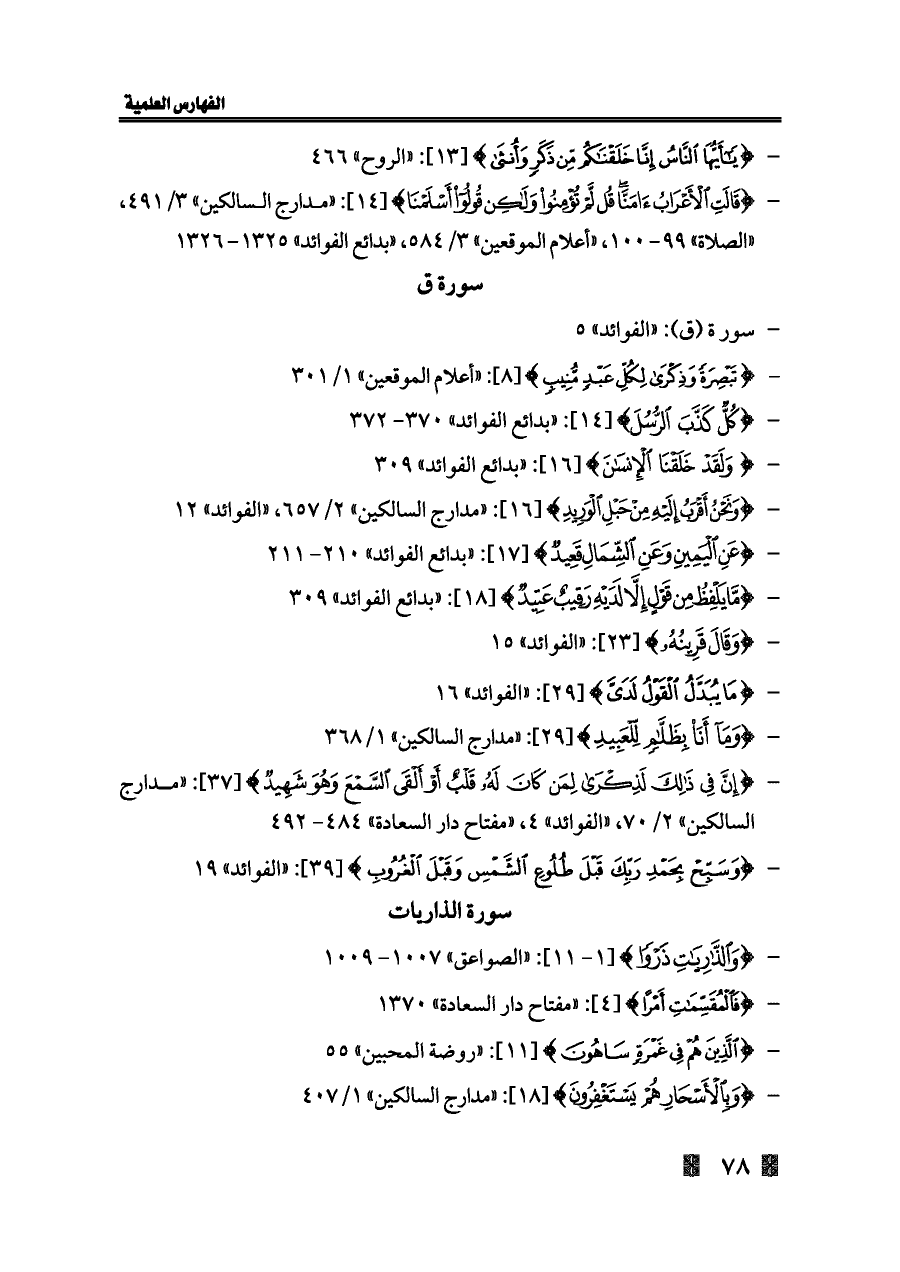 الفهارس العلمية
- ﴿يَٰٓأَيُّهَا ٱلنَّاسُ إِنَّا خَلَقْنَٰكُم مِّن ذَكَرٍ وَأُنثَىٰ﴾ [١٣]: «الروح» ٤٦٦
- ﴿قَالَتِ ٱلْأَعْرَابُ ءَامَنَّا ۖ قُل لَّمْ تُؤْمِنُوا۟ وَلَٰكِن قُولُوٓا۟ أَسْلَمْنَا﴾ [١٤]: «مـدارج الـسالكين» ٣/ ٤٩١،
«الصلاة» ٩٩ - ١٠٠، «أعلام الموقعين» ٣/ ٥٨٤، «بدائع الفوائد» ١٣٢٥ - ١٣٢٦
سورة ق
- سورة (ق): «الفوائد» ٥
- ﴿تَبْصِرَةً وَذِكْرَىٰ لِكُلِّ عَبْدٍ مُّنِيبٍ﴾ [٨]: «أعلام الموقعين» ١/ ٣٠١
- ﴿كُلٌّ كَذَّبَ ٱلرُّسُلَ﴾ [١٤]: «بدائع الفوائد» ٣٧٠ - ٣٧٢
- ﴿وَلَقَدْ خَلَقْنَا ٱلْإِنسَٰنَ﴾ [١٦]: «بدائع الفوائد» ٣٠٩
- ﴿وَنَحْنُ أَقْرَبُ إِلَيْهِ مِنْ حَبْلِ ٱلْوَرِيدِ﴾ [١٦]: «مدارج السالكين» ٢/ ٦٥٧، «الفوائد» ١٢
- ﴿عَنِ ٱلْيَمِينِ وَعَنِ ٱلشِّمَالِ قَعِيدٌ﴾ [١٧]: «بدائع الفوائد» ٢١٠ - ٢١١
- ﴿مَّا يَلْفِظُ مِن قَوْلٍ إِلَّا لَدَيْهِ رَقِيبٌ عَتِيدٌ﴾ [١٨]: «بدائع الفوائد» ٣٠٩
- ﴿وَقَالَ قَرِينُهُۥ﴾ [٢٣]: «الفوائد» ١٥
- ﴿مَا يُبَدَّلُ ٱلْقَوْلُ لَدَىَّ﴾ [٢٩]: «الفوائد» ١٦
- ﴿وَمَآ أَنَا۠ بِظَلَّٰمٍ لِّلْعَبِيدِ﴾ [٢٩]: «مدارج السالكين» ١/ ٣٦٨
- ﴿إِنَّ فِى ذَٰلِكَ لَذِكْرَىٰ لِمَن كَانَ لَهُۥ قَلْبٌ أَوْ أَلْقَى ٱلسَّمْعَ وَهُوَ شَهِيدٌ﴾ [٣٧]: «مـدارج
السالكين» ٢/ ٧٠، «الفوائد» ٤، «مفتاح دار السعادة» ٤٨٤ - ٤٩٢
- ﴿وَسَبِّحْ بِحَمْدِ رَبِّكَ قَبْلَ طُلُوعِ ٱلشَّمْسِ وَقَبْلَ ٱلْغُرُوبِ﴾ [٣٩]: «الفوائد» ١٩
سورة الذاريات
- ﴿وَٱلذَّٰرِيَٰتِ ذَرْوًا﴾ [١ - ١١]: «الصواعق» ١٠٠٧ - ١٠٠٩
- ﴿فَٱلْمُقَسِّمَٰتِ أَمْرًا﴾ [٤]: «مفتاح دار السعادة» ١٣٧٠
- ﴿ٱلَّذِينَ هُمْ فِى غَمْرَةٍ سَاهُونَ﴾ [١١]: «روضة المحبين» ٥٥
- ﴿وَبِٱلْأَسْحَارِ هُمْ يَسْتَغْفِرُونَ﴾ [١٨]: «مدارج السالكين» ١/ ٤٠٧
٧٨